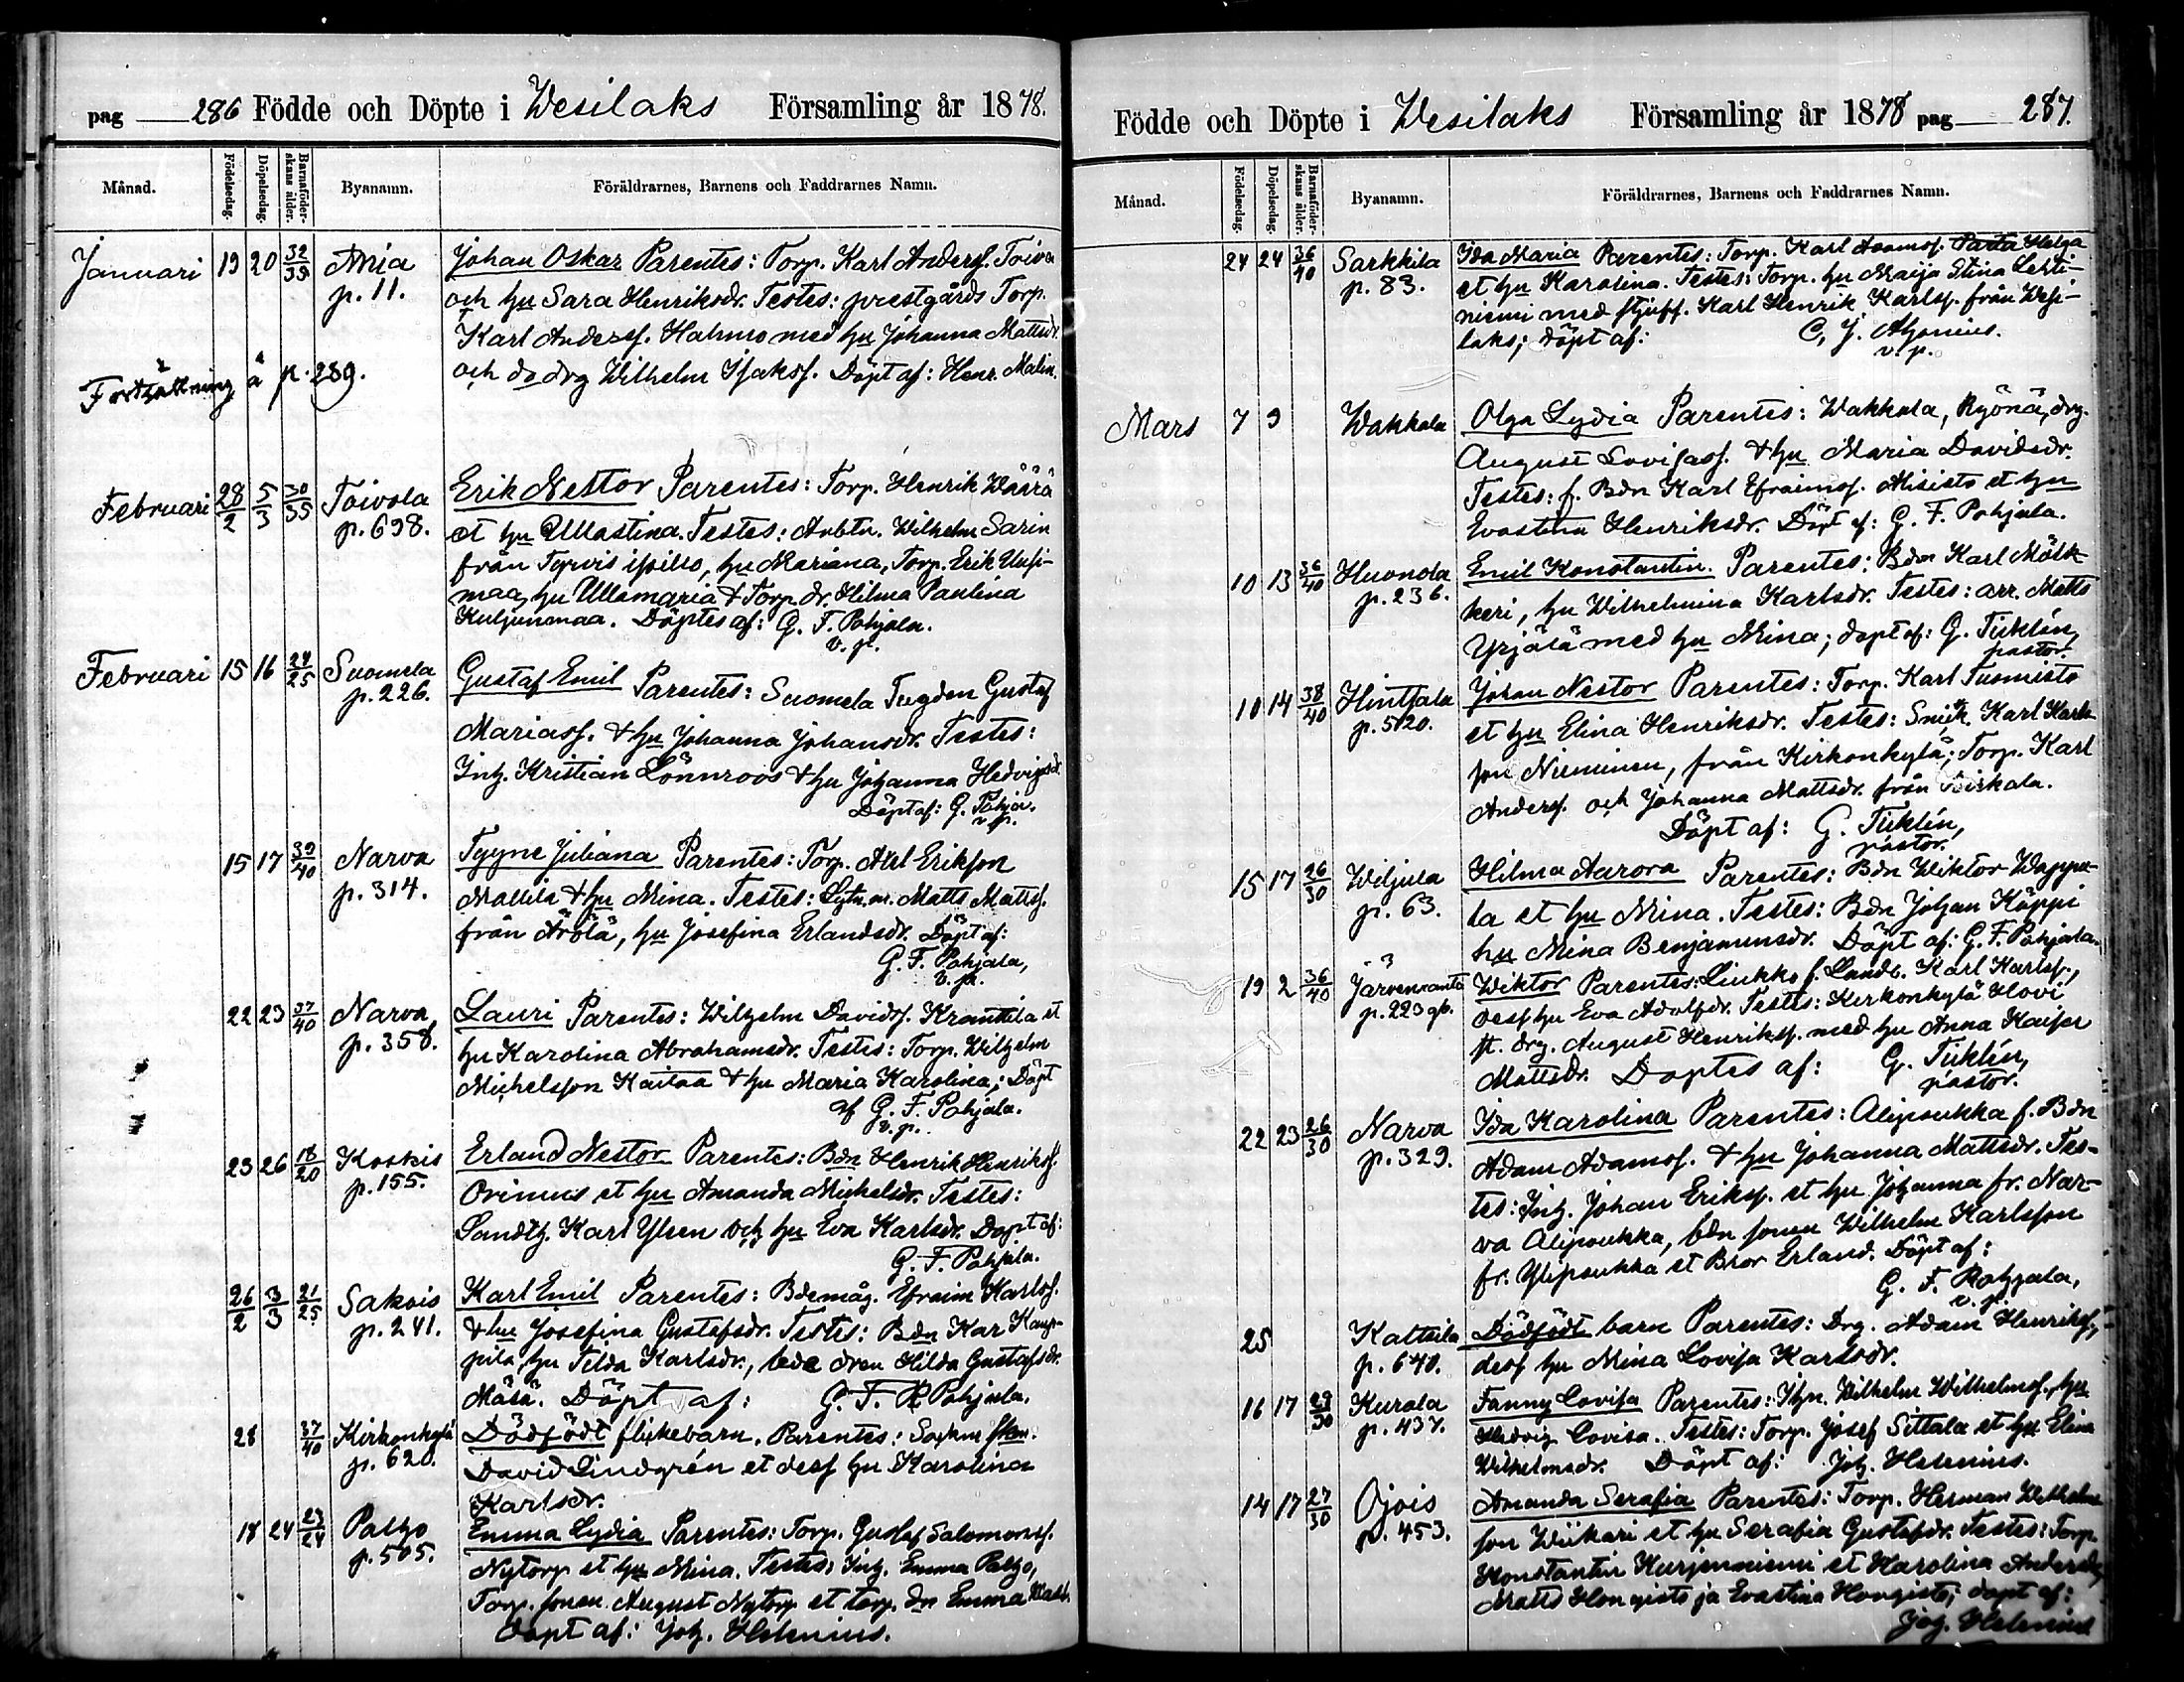 pag 286 Födde och Döpte i Wesilaks Församling år 1878.
Månad. Födelsedag. Döpelsedag. Barnaföderskans ålder. Byanamn. Föräldrarnes, Barnens och Faddrarnes Namn.
Januari 19 20 32/35 Ania Johan Oskar Parentes: Torp. Karl Anderss. Toiva
p. 11. och hu Sara Henriksdr. Testes: prestgårds Torp.
Karl Anderss. Hahmo med hu Johanna Mattsdr.
Fortsättning å p. 289. och do drg Wilhelm Isakss. Döpt af: Henr. Malin.
Februari 28/2 5/3 30/35 Toivola Erik Nestor Parentes: Torp. Henrik Wäärä
p. 698. et hu Ullastina. Testes: Arbtn. Wilhelm Sarin
från Tyrvis, hu Mariana, Torp. Erik Uusi-
maa, hu Ullamaria & Torp. dr. Hilma Paulina
Kuljunmaa. Döptes af: G. F. Pohjala.
v. p.
Februari 15 16 24/25 Suomela Gustaf Emil Parentes: Suomela Gustaf
p. 226. Mariass. & hu Johanna Johansdr. Testes:
Inh. Kristian Lönnroos & hu Johanna Hedvigsdr
Döpt af: G. Pohja.
v. p.
15 17 39/40 Narva Tyyne Juliana Parentes: Torp. Axel Erikson
p. 314. Mattila & hu Mina. Testes: Matts Mattss.
från Ärölä, hu Josefina Erlandsdr. Döpt af:
G. F. Pohjala,
v. p.
22 23 37/40 Narva Lauri Parentes: Wilhelm Davidss. Kranttila et
p. 358. hu Karolina Abrahamsdr. Testes: Torp. Wilhelm
Michelsson Kaitaa & hu Maria Karolina; Döpt
af G. F. Pohjala.
v. p.
23 26 18/20 Koskis Erland Nestor Parentes: Bdn Henrik Henrikss.
p. 155. Orimus et hu Amanda Michelsdr. Testes:
Landth. Karl Ylsen och hu Eva Karlsdr. Döpt af:
G. F. Pohjala.
26/2 3/3 21/25 Sakois Karl Emil Parentes: Bdemåg. Efraim Karlss.
p. 241. & hu Josefina Gustafsdr. Testes: Bdn Kar Kaup-
pila, hu Tilda Karlsdr., Hilda Gustafsdr.
Mäsä. Döpt af: G. F. Pohjala.
28 37/40 Kirkonkylä Dödfödt flickebarn. Parentes:
p. 620. David Lindgrén et dess hu Karolina
Karlsdr.
18 24 23/24 Palho Emma Lydia Parentes: Torp. Gustaf Salomonss.
p. 505. Nytorp et hu Mina. Testes: Inh. Emma Palho,
Torp. sonen August Nytorp et torp. dr. Emma
Döpt af: Joh. Helenius.
Födde och Döpte i Wesilaks Församling år 1878 pag 287.
Månad. Födelsedag. Döpelsedag. Barnaföderskans ålder. Byanamn. Föräldrarnes, Barnens och Faddrarnes Namn.
24 24 36/40 Sarkkila Ida Maria Parentes: Torp. Karl Adamss. Parta Helga
p. 83. et hu Karolina. Testes: Torp. hu Maija Stina Lehti-
niemi med styfs. Karl Henrik Karlss. från Wesi-
laks; Döpt af: C. J. Alzenius.
v. p.
Mars 7 9 Wakkala Olga Lydia Parentes: Wakkala, Ryönä, drg.
August Lovisass. & hu Maria Davidsdr.
Testes: f. Bdn Karl Efraimss. Misisto et hu
Evastina Henriksdr. Döpt af: G. F. Pohjala.
10 13 36/40 Huonola Emil Konstantin. Parentes: Bdn Karl Mölk-
p. 236. keri, hu Wilhelmina Karlsdr. Testes: arr. Matts
Yrjälä med hu Mina; döpt af: G. Tiiklin,
pastor.
10 14 38/40 Hinttala Johan Nestor Parentes: Torp. Karl Tuomisto
p. 520. et hu Elina Henriksdr. Testes: Karl Karls-
son Nieminen, från Kirkonkylä; Torp. Karl
Anderss. och Johanna Mattsdr. från Birkala.
Döpt af: G. Tiiklin,
pastor.
15 17 26/30 Wiljula Hilma Aurora Parentes: Bdn Wiktor Wappu-
p. 63. la et hu Mina. Testes: Bdn Johan Käppi
hu Mina Benjaminsdr. Döpt af: G. F. Pohjala.
19 2 36/40 Järvenranta Wiktor Parentes: Liukko f. Landb. Karl Karlss.,
p. 223 dess hu Eva Adolfsdr. Testes: Kirkonkylä Hovi
st. drg. August Henrikss. med hu Anna Kaisa
Mattsdr. Döptes af: G. Tiiklin,
pastor.
22 23 26/30 Narva Ida Karolina Parentes: Alipoukka f. Bdn
p. 329. Adam Adamss. & hu Johanna Mattsdr. Tes-
tes: Inh. Johan Erikss. et hu Johanna fr. Nar-
va Alipoukka, bdn sonen Wilhelm Karlsson
fr. Ylipoukka et Bror Erland. Döpt af:
G. F. Pohjala,
v. p.
25 Kaltsila Dödfödt barn Parentes: Drg. Adam Henrikss.,
p. 640. dess hu Mina Lovisa Karlsdr.
16 17 29/30 Kurala Fanny Lovisa Parentes: Wilhelm Wilhelmss., hu
p. 437. Hedvig Lovisa. Testes: Torp. Josef Sittala et hu Elina
Wilhelmsdr. Döpt af: Joh. Helenius.
14 17 27/30 Ojois Amanda Serafia Parentes: Torp. Herman Wilhelms-
p. 453. son Wiikari et hu Serafia Gustafsdr. Testes: Torp.
Konstantin Kurjenniemi et Karolina Andersdr,
Matts Honyisto ja Evastina Honyisto; döpt af:
Joh. Helenius